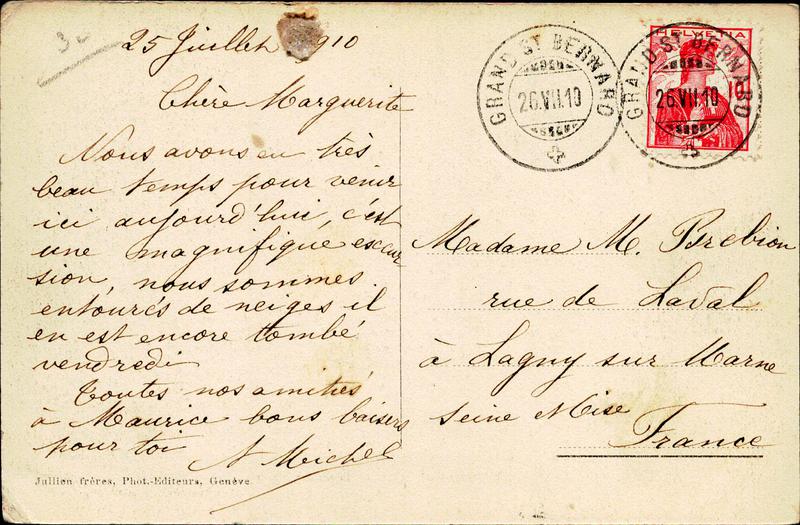 25 Juillet 1910
Chère Marguerite
Nous avons eu très
beau temps pour venir
ici aujourd'hui, c'est
une magnifique excur
sion, nous sommes
entourés de neiges il
en est encore tombé
vendredi
Toutes nos amitiés
à Maurice bons baisers
pour toi
Michel
Jullien frères, Phot.-Editeurs, Genève
GRAND-ST BERNARD
26.VII.10
HELVETIA
10
GRAND-ST BERNARD
26.VII.10
Madame M. Brebion
rue de Laval
à Lagny sur Marne
Seine Mise
France